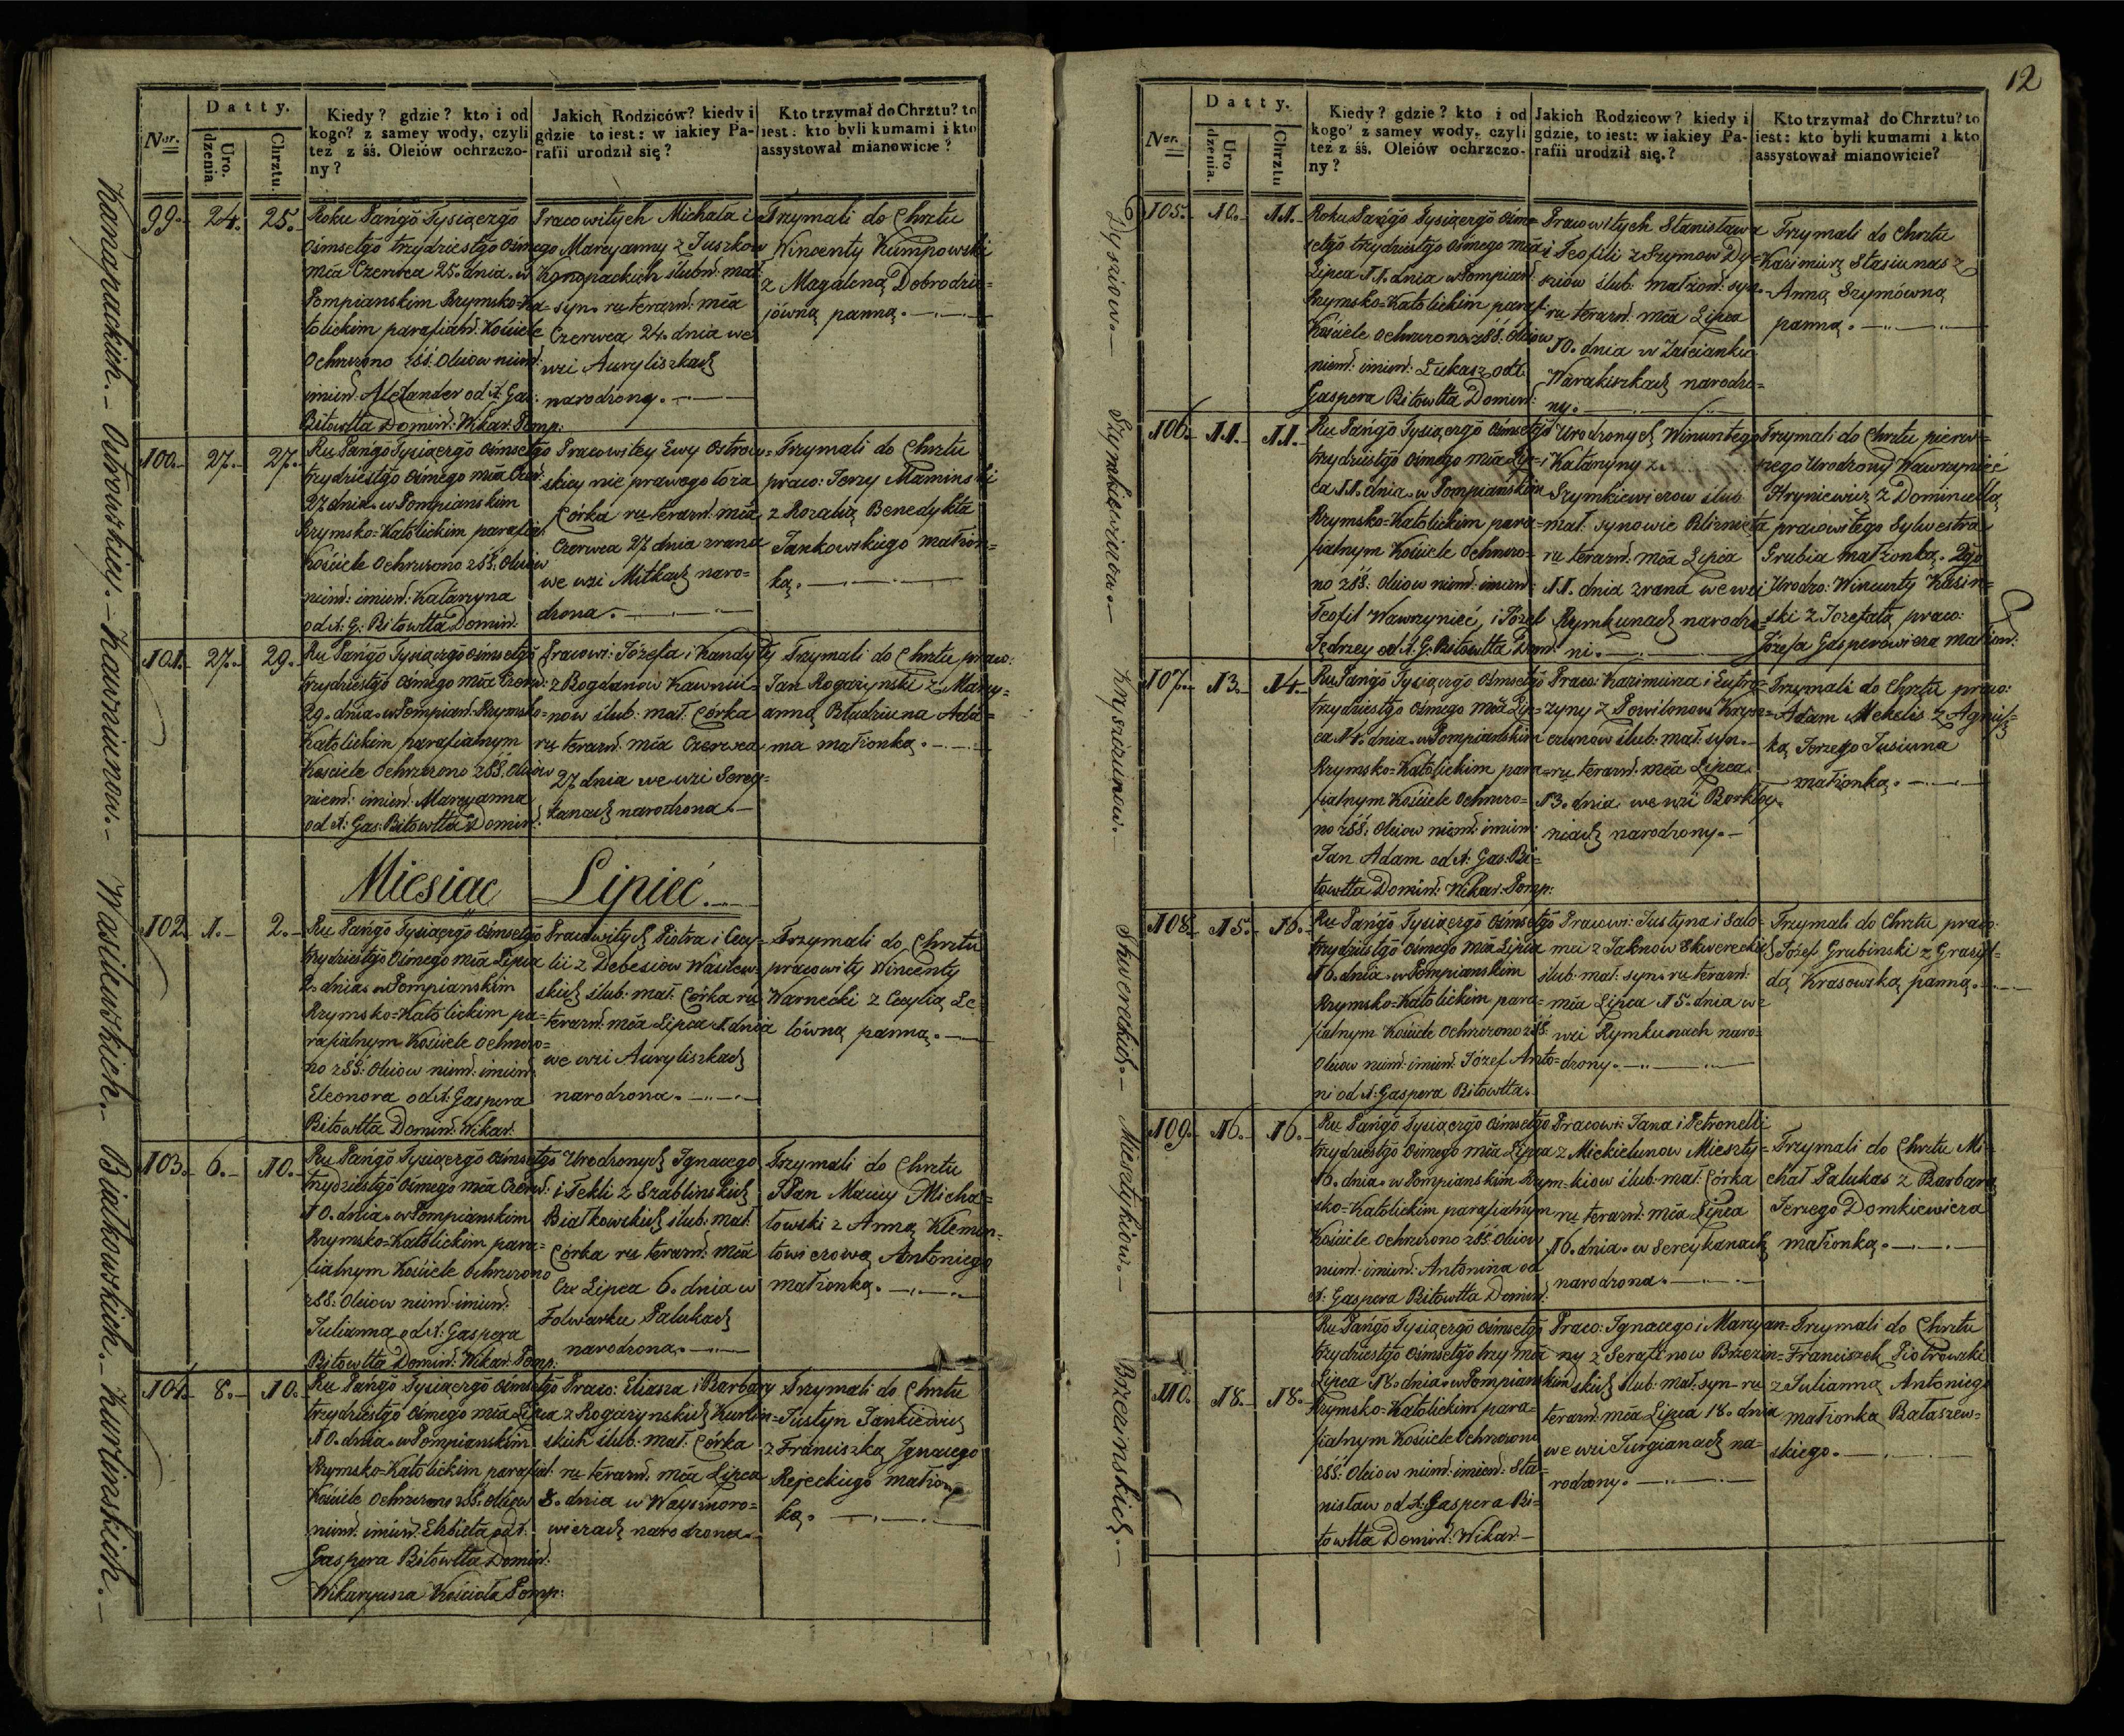 Nar.
Datty.
Uro.
dzenia
Chrztu.
Kiedy? gdzie? kto i od
kogo? z samey wody, czyli
też z śś. Oleiów ochrzczo-
ny?
Jakich Rodziców? kiedy i
gdzie to iest: w iakiey Pa-
rafii urodził się?
Kto trzymał do Chrztu? to
iest: kto byli kumami i kto
assystował mianowicie?
Konopackich.- Ostrowskiey.- Kawnunow.- Wasilewskich.- Białkowskich.- Kurlinskich.-
99.- 24. 25.-
Roku Pańgo Tysiącrgo
ośmsetgo trzydziestgo ośmego
mca Czerwca 25. dnia. w
Pompianskim Rzymsko-Ka=
tolickim parafialn. Kościele
Ochrzczono zśś. Oleiow niem:
imien: Alexander od X. Gas:
Bitowtta Domin: Wikar. Pomp:
Pracowitych Michała i
Marcyanny z Juszkow
Konopackich ślubn: mał:
syn. ru terazn. mca
Czerwca 24. dnia we
wsi Auryliszkach
narodzony.-
Trzymali do Chrztu
Wincenty Kumpowski
z Magdaleną Dobrodzie=
jówną panną.-
100.- 27.- 27.-
Ru Pańgo Tysiącrgo Ośmsetgo
trzydziestgo Ośmego mca Czer:
27 dnia. w Pompianskim
Rzymsko=Katolickim parafial:
Kościele Ochrzczono zśś. Oleiow
niem: imien: Katarzyna
od X. G: Bitowtta Domin:
Pracowitey Ewy Ostrow=
skiey nie prawego łoża
Córka ru terazn. mca
Czerwca 27 dnia zrana
we wsi Mitkach naro=
dzona.-
Trzymali do Chrztu
praco: Jerzy Maminski
z Rozalią Benedykta
Jankowskiego małżon=
ką.-
101.- 27.- 29.-
Ru Pańgo Tysiącrgo ośmsetgo
trzydziestgo ośmego mca Czerw:
29. dnia. w Pompian: Rzymsko=
Katolickim parafialnym
Kościele Ochrzczono zśś. Oleiow
niem: imien: Marcyanna
od X: Gas: Bitowtta Domin:
Pracowi: Józefa i Kandydy
z Bogdanow Kawnu=
now ślub: mał. Córka
ru terazn. mca Czerwca
27 dnia we wsi Serey=
kanach narodzona.-
Trzymali do Chrztu praco:
Jan Rogozynski z Mary=
anną Bładziuna Ada=
ma małżonką.-
Miesiąc Lipieć.-
102. 1.- 2.-
Ru Pańgo Tysiącrgo Ośmsetgo
trzydziestgo Ośmego mca Lipca
2. dnia. w Pompianskim
Rzymsko=Katolickim pa=
rafialnym Kościele Ochrzczo=
no zśś: Oleiow niem: imien:
Eleonora od X: Gaspera
Bitowtta Domin: Wikar:
Pracowitych Piotra i Cecy=
lii z Debesiow Wasilew=
skich ślub: mał. Córka ru
terazn. mca Lipca 1. dnia
we wsi Auryliszkach
narodzona.-
Trzymali do Chrztu
pracowity Wincenty
Warnecki z Cecylią Le=
lówną panną.-
103.- 6.- 10.-
Ru Pańgo Tysiącrgo Ośmsetgo
trzydziestgo Ośmego mca Czerw:
10. dnia. w Pompianskim
Rzymsko=Katolickim para=
fialnym Kościele Ochrzczono
zśś: Oleiow niem: imien:
Julianna od X: Gaspera
Bitowtta Domin: Wikar: Pomp:
Urodzonych Ignacego
i Tekli z Szablinskich
Białkowskich ślub: mał.
Córka ru terazn. mca
Cze Lipca 6. dnia w
Folwarku Palukach
narodzona.-
Trzymali do Chrztu
JPan Maciey Micha=
łowski z Anną Klemen=
towiczową Antoniego
małżonką.-
104.- 8.- 10.-
Ru Pańgo Tysiącrgo ośmsetgo
trzydziestgo ośmego mca Lipca
10. dnia. w Pompianskim
Rzymsko-Katolickim parafial:
Kościele Ochrzczono zśś. Oleiow
niem: imien: Elżbieta od X.
Gaspera Bitowtta Domin:
Wikaryusza Kościoła Pomp:
Praco: Eliasza i Barbary
z Rogozynskich Kurlin=
skich ślub: mał. Córka
ru terazn. mca Lipca
8. dnia w Wayznoro=
wiczach narodzona.-
Trzymali do Chrztu
Justyn Jankiewicz
z Franciszką Ignacego
Rejeckiego małżon
ką.-
12
Nar.
Datty.
Uro
dzenia.
Chrztu
Kiedy? gdzie? kto i od
kogo? z samey wody, czyli
też z śś. Oleiów ochrzczo-
ny?
Jakich Rodziców? kiedy i
gdzie, to iest: w iakiey Pa-
rafii urodził się.?
Kto trzymał do Chrztu? to
iest: kto byli kumami i kto
assystował mianowicie?
Dysziow.- Szymkiewiczow.- Skwereckich.- Miesztykiow.- Brzezinskich.-
105.- 10.- 11.-
Roku Pańgo Tysiącrgo Ośm=
setgo trzydziestgo Ośmego mca
Lipca 11. dnia w Pompian:
Rzymsko=Katolickim paraf:
Kościele Ochrzczono zśś: Oleiow
niem: imien: Łukasz od X.
Gaspera Bitowtta Domin:
Pracowitych Stanisława
i Teofili z Szymow Dy=
sziow ślub: małżon: syn.
ru terazn. mca Lipca
10. dnia w Zaścianku
Warakiszkach narodzo=
ny.-
Trzymali do Chrztu
Kazimierz Stasiunas z
Anną Szymówną
panną.-
106.- 11.- 11.-
Ru Pańgo Tysiącrgo Ośmsetgo
trzydziestgo Ośmego mca Lip=
ca 11. dnia. w Pompiańskim
Rzymsko=Katolickim para=
fialnym Kościele Ochrzczo=
no zśś: Oleiow niem: imien:
Teofil Wawrzynieć, i Józef
Jędrzey od X. G: Bitowtta Dom:
Urodzonych Wincentego
i Katarzyny z
Szymkiewiczow ślub:
mał. synowie Bliznięta
ru terazn. mca Lipca
11. dnia zrana we wsi
Rymkunach narodze=
ni.-
Trzymali do Chrztu pierw=
szego Urodzony Wawrzynieć
Hryniewicz z Dominicellą
pracowitego Sylwestra
Grubia małżonką. 2go
Urodzo: Wincenty Kasin=
ski z Jozefatą praco:
Józefa Gasperowicza małżon:
107.- 13.- 14.-
Ru Pańgo Tysiącrgo Ośmsetgo
trzydziestgo Ośmego mca Lip=
ca 14. dnia. w Pompianskim
Rzymsko=Katolickim para=
fialnym Kościele Ochrzczo=
no zśś: Oleiow niem: imien:
Jan Adam od X: Gas: Bi=
towtta Domin: Wikar: Pomp:
Praco: Kazimierza i Eufro=
zyny z Powilonow
ślub: mał. syn.-
ru terazn. mca Lipca
13. dnia we wsi
niach narodzony.-
Trzymali do Chrztu praco:
Adam Mekelis z Agniesz=
ką Jerzego Jusiuna
małżonką.-
108. 15.- 16.-
Ru Pańgo Tysiącrgo Ośmsetgo
trzydziestgo Ośmego mca Lipca
16. dnia. w Pompianskim
Rzymsko=Katolickim para=
fialnym Kościele Ochrzczono zśś:
Oleiow niem: imien: Józef Anto=
ni od X: Gaspera Bitowtta.
Pracowi: Justyna i Salo=
mei z Jaknow Skwereckich
ślub: mał. syn. ru terazn:
mca Lipca 15. dnia we
wsi Rymkunach naro=
dzony.-
Trzymali do Chrztu praco:
Józef Grubinski z Grazyl=
dą Krasowską panną.-
109.- 16.- 16.-
Ru Pańgo Tysiącrgo Ośmsetgo
trzydziestgo Ośmego mca Lipca
16. dnia. w Pompianskim Rzym=
sko=Katolickim parafialnym
Kościele Ochrzczono zśś. Oleiow
niem: imien: Antonina od
X: Gaspera Bitowtta Domin:
Pracowi: Jana i Petronelli
z Mickielunow Mieszty=
kiow ślub: mał. Córka
ru terazn. mca Lipca
16. dnia. w Sereykanach
narodzona.-
Trzymali do Chrztu Mi=
chał Palukas z Barbarą
Jerzego Domkiewicza
małżonką.-
110. 18.- 18.-
Ru Pańgo Tysiącrgo Ośmsetgo
trzydziestgo Ośmsetgo trzy mca
Lipca 18. dnia. w Pompianskim
Rzymsko=Katolickim para=
fialnym Kościele Ochrzczono
zśś: Oleiow niem: imien: Sta=
nisław od X: Gaspera Bi=
towtta Domin: Wikar.-
Praco: Ignacego i Maryan=
ny z Serafinow Brzezin=
skich ślub: mał. syn ru
terazn. mca Lipca 18. dnia
we wsi Jurgianach na=
rodzony.-
Trzymali do Chrztu
Franciszek Piotrowski
z Julianną Antoniego
małżonką Bałaszew=
skiego.-